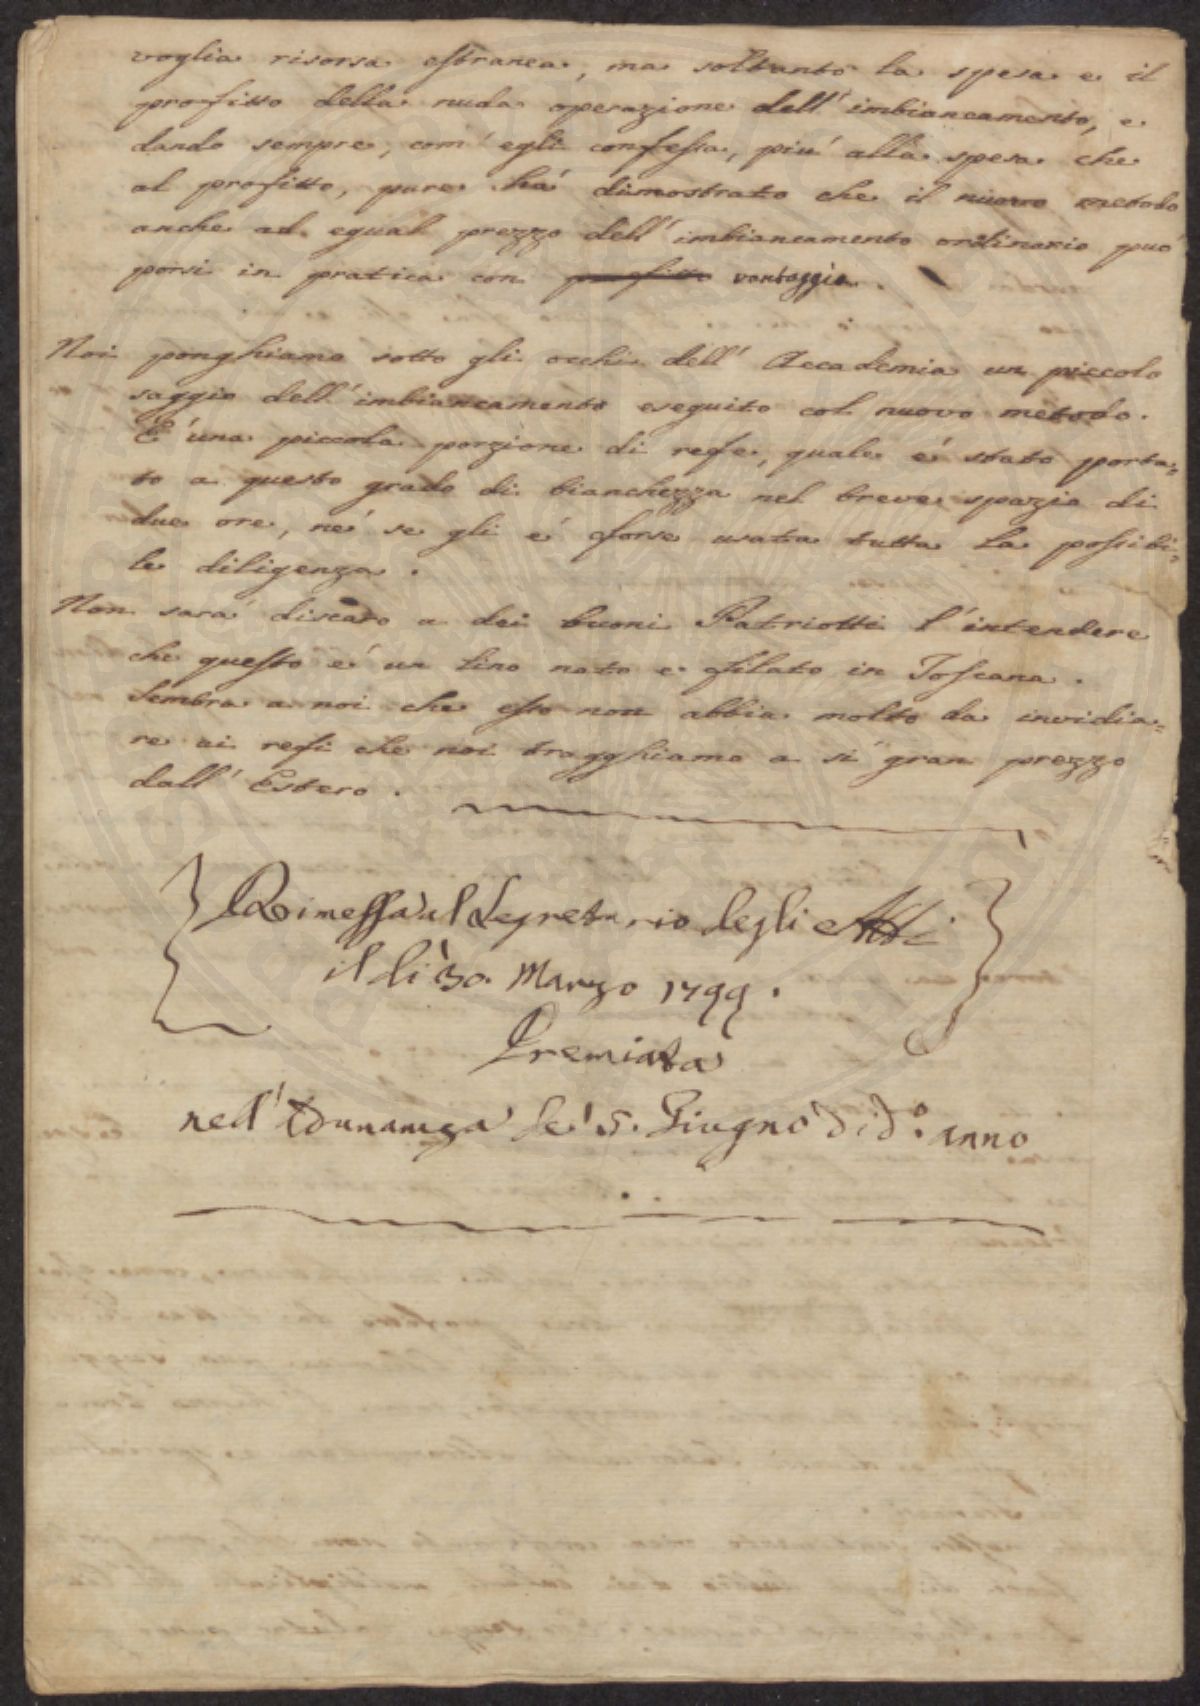 voglia risorsa estranea, ma soltanto la spesa e il
profitto della nuda operazione dell'imbiancamento, e
dando sempre, com'egli confessa, più alla spesa che
al profitto, pure há dimostrato che il nuovo metodo
anche ad egual prezzo dell'imbiancamento ordinario può
porsi in pratica con profitto vantaggio.
Noi ponghiamo sotto gli occhi dell'Accademia un piccolo
saggio dell'imbiancamento eseguito col nuovo metodo.
È una piccola porzione di refe, quale é stato porta=
to a questo grado di bianchezza nel breve spazio di
due ore, né se gli é forse usata tutta la possibi=
le diligenza.
Non sará discaro a dei buoni Patriotti l'intendere
che questo é un lino nato e filato in Toscana.
Sembra a noi che esso non abbia molto da invidia=
re ai refi che noi tragghiamo a sí gran prezzo
dall'Estero.
Rimessa al Segretario degli Atti
il dì 30. Marzo 1799.
Premiata
nell'Adunanza de' 5. Giugno di d.º anno